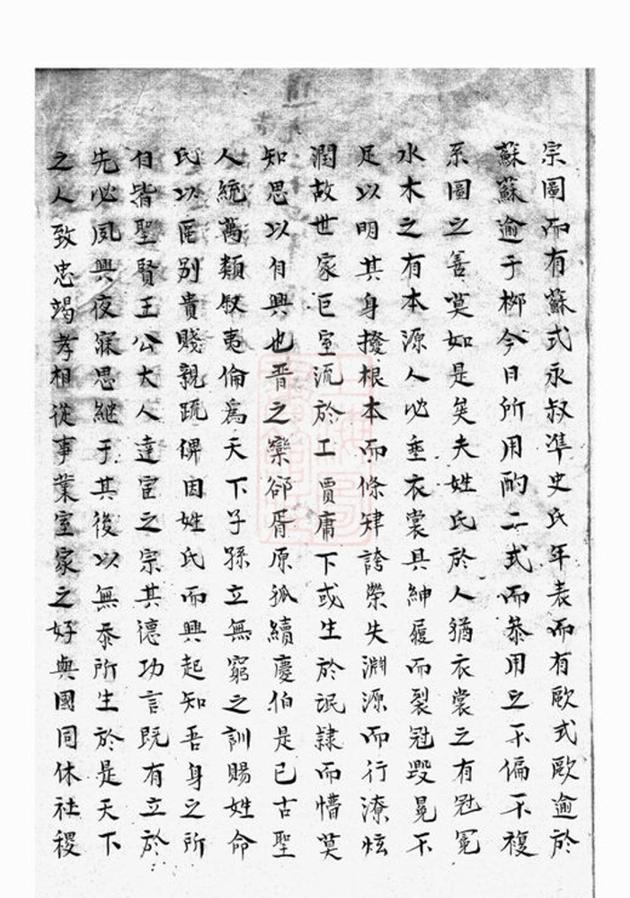 宗圖而有蘇式永叔準史氏年表而有歐式歐逾於
蘇蘇逾于栁今日所用酌二式而叅用之不偏不複
系圖之善莫如是矣夫姓氏於人猶衣裳之有冠冕
水木之有本源人必垂衣裳具紳履而裂冠毀冕不
足以明其身撥根本而條肄誇榮失淵源而行潦炫
潤故世家巨室流於工賈庸下或生於氓隷而懵莫
知思以自興也晋之欒郤胥原狐續慶伯是已古聖
人統萬類叙夷倫爲天下子孫立無窮之訓賜姓命
氏以區別貴賤親疏俾因姓氏而興起知吾身之所
自皆聖賢王公大人達官之宗其德功言既有立於
先必夙興夜寐思継于其後以無忝所生於是天下
之人致忠竭孝相從事業室家之好與國同休社稷